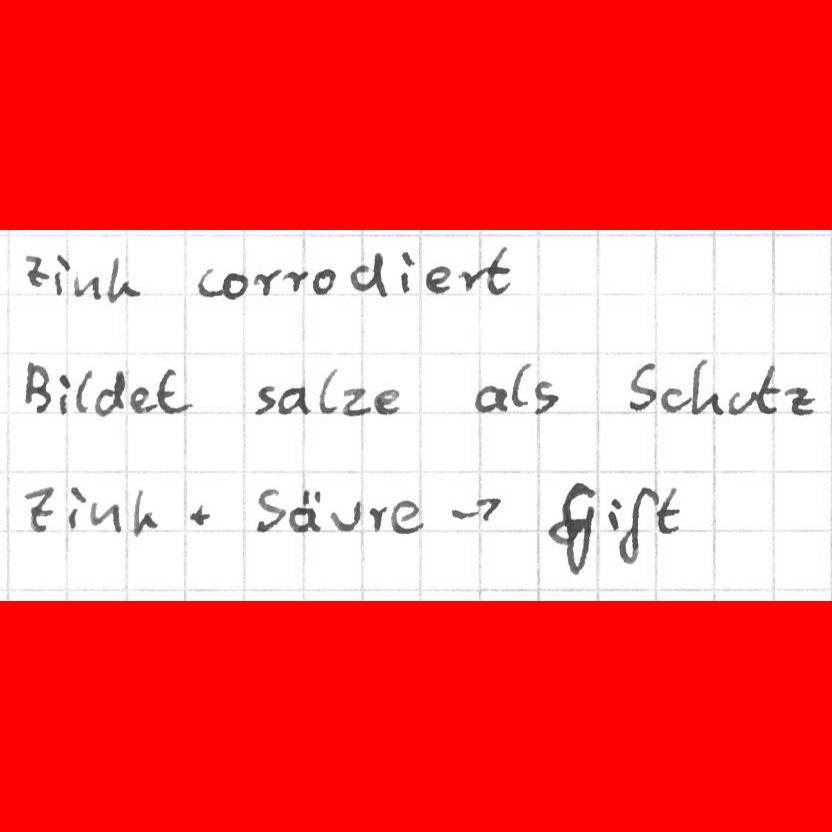 Zink corrodiert
Bildet salze als Schutz
Zink + Säure → Gift